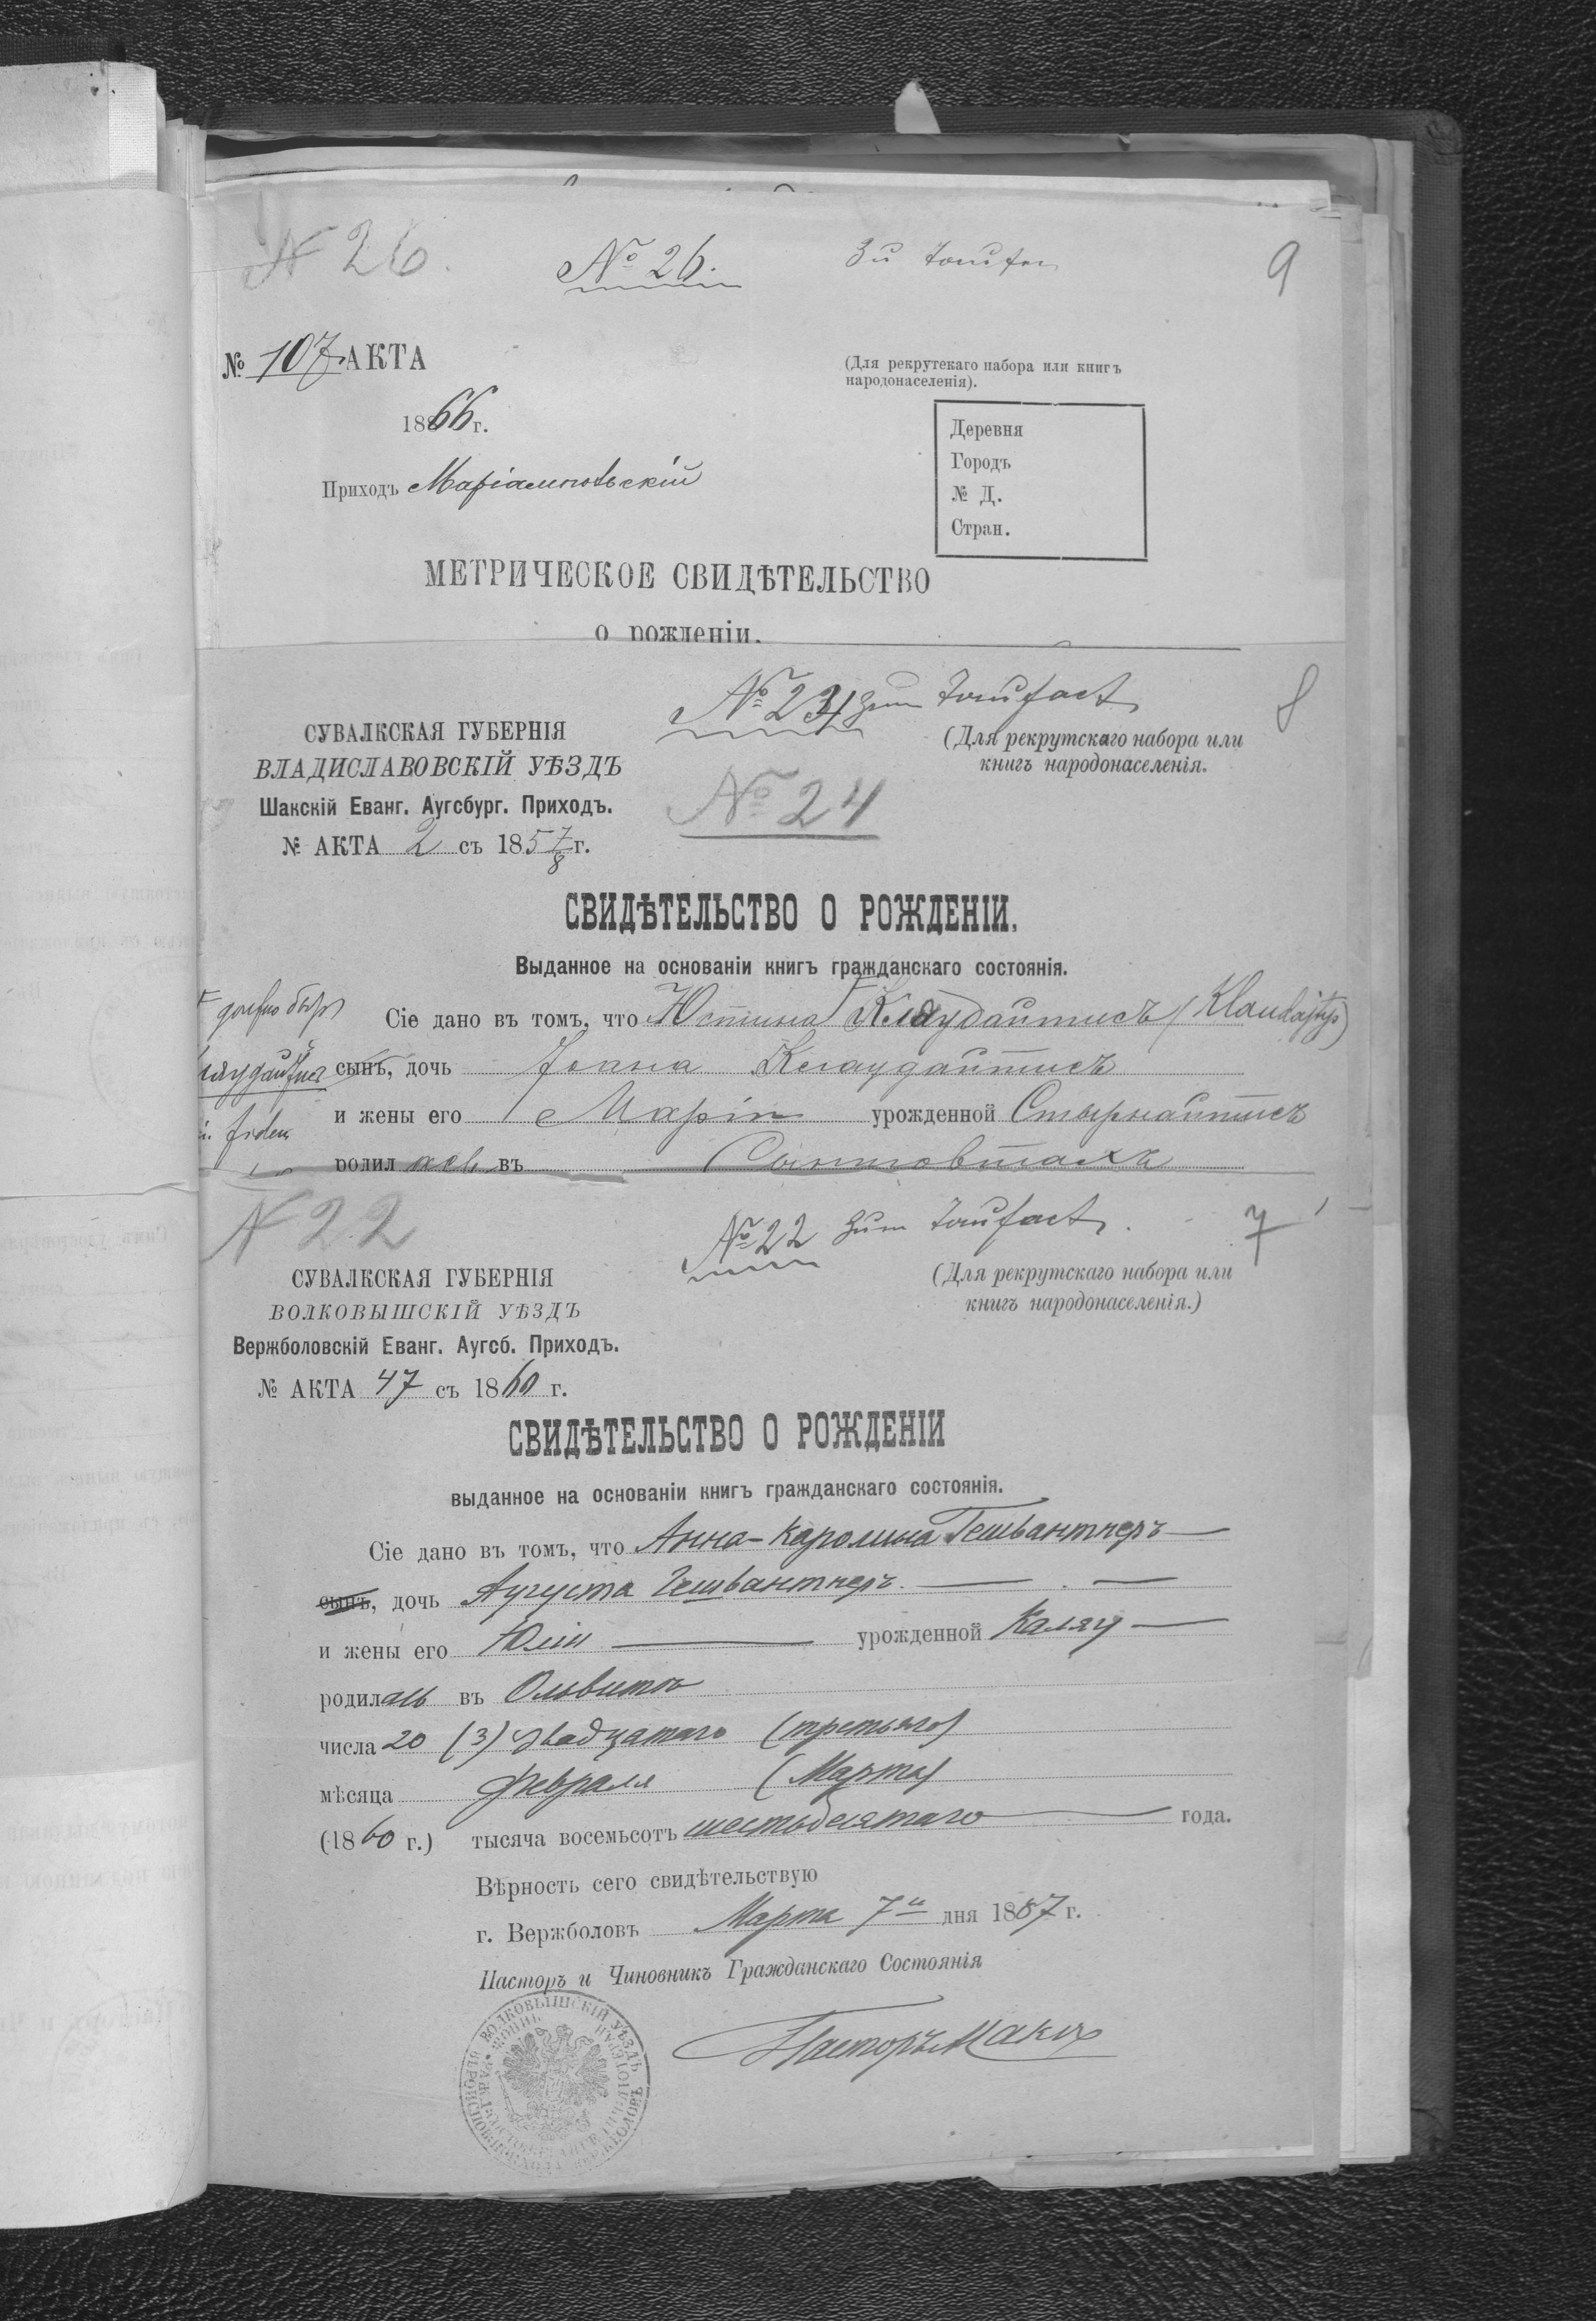 N 26.
№ 26.
9
№ 107 АКТА
(Для рекрутскаго набора или книгъ
народонаселенія).
1866 г.
Деревня
Городъ
№ Д.
Стран.
Приходъ Маріампольскій
МЕТРИЧЕСКОЕ СВИДѢТЕЛЬСТВО
о рожденіи.
№ 24 zum Taufact
8
СУВАЛКСКАЯ ГУБЕРНІЯ
ВЛАДИСЛАВОВСКІЙ УѢЗДЪ
(Для рекрутскаго набора или
книгъ народонаселенія.
Шакскій Еванг. Аугсбург. Приходъ.
№ 24
№ АКТА 2 съ 1857/8 г.
СВИДѢТЕЛЬСТВО О РОЖДЕНІИ.
Выданное на основаніи книгъ гражданскаго состоянія.
должно быть
Сіе дано въ томъ, что Юстина Клаудайтисъ (Klaudajtys)
сынъ, дочь Іоана Клаудайтисъ
и жены его Маріи урожденной Стырнайтисъ
fidem
родилась въ
N 22
№ 22 zum Taufact.
7
СУВАЛКСКАЯ ГУБЕРНІЯ
ВОЛКОВЫШСКІЙ УѢЗДЪ
(Для рекрутскаго набора или
книгъ народонаселенія.)
Вержболовскій Еванг. Аугсб. Приходъ.
№ АКТА 47 съ 1860 г.
СВИДѢТЕЛЬСТВО О РОЖДЕНІИ
выданное на основаніи книгъ гражданскаго состоянія.
Сіе дано въ томъ, что Анна-Каролина Гешвантнеръ
сынъ, дочь Августа Гешвантнеръ.
и жены его Юліи урожденной
родилась въ Ольвитѣ
числа 20 (3) двадцатаго (третьяго)
мѣсяца Февраля (Марта)
(1860 г.) тысяча восемьсотъ шестьдесятаго года.
Вѣрность сего свидѣтельствую
г. Вержболовъ Марта 7 дня 1887 г.
Пасторъ и Чиновникъ Гражданскаго Состоянія
Пасторъ
ВОЛКОВЫШСКІЙ УѢЗДЪ